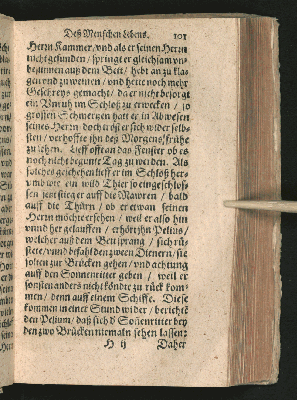 Deß Menschen Lebens. 101
Herrn Kammer / und als er seinen Herrn
nicht gefunden / springt er gleichsam un-
besunnen auß dem Bett / hebt an zu kla-
gen und zu weinen / und hette noch mehr
Geschreys gemacht / da er nicht besorgt
ein Unruh im Schloß zu erwecken / so
grossen Schmertzen hatt er in Abwesen
seines Herrn doch tröst er sich wider selb-
sten / verhoffte ihn deß Morgens frühe
zu sehen. Lieff offt an das Fenster ob es
noch nicht begunte Tag zu werden. Als
solches geschehen lieff er im Schloß her-
umb wie ein wild Thier so eingeschlos-
sen jetzt stieg er auff die Mauren / bald
auff die Thürn / ob er etwan seinen
Herrn möchte ersehen / weil er also hin
unnd her gelauffen / erhört ihn Pelius /
welcher auß dem Bett sprang / sich rü-
stete / unnd befahl den zween Dienern / sie
solten zur Brücken gehen / und achtung
auff den Sonnenritter geben / weil er
sonsten anders nicht köndte zu rück kom-
men / denn auff einem Schiffe. Diese
kommen in einer Stund wider / berichtē
den Pelium / daß sich d' Soñenritter bey
den zwo Brücken niemaln sehen lassen:
H ij Daher